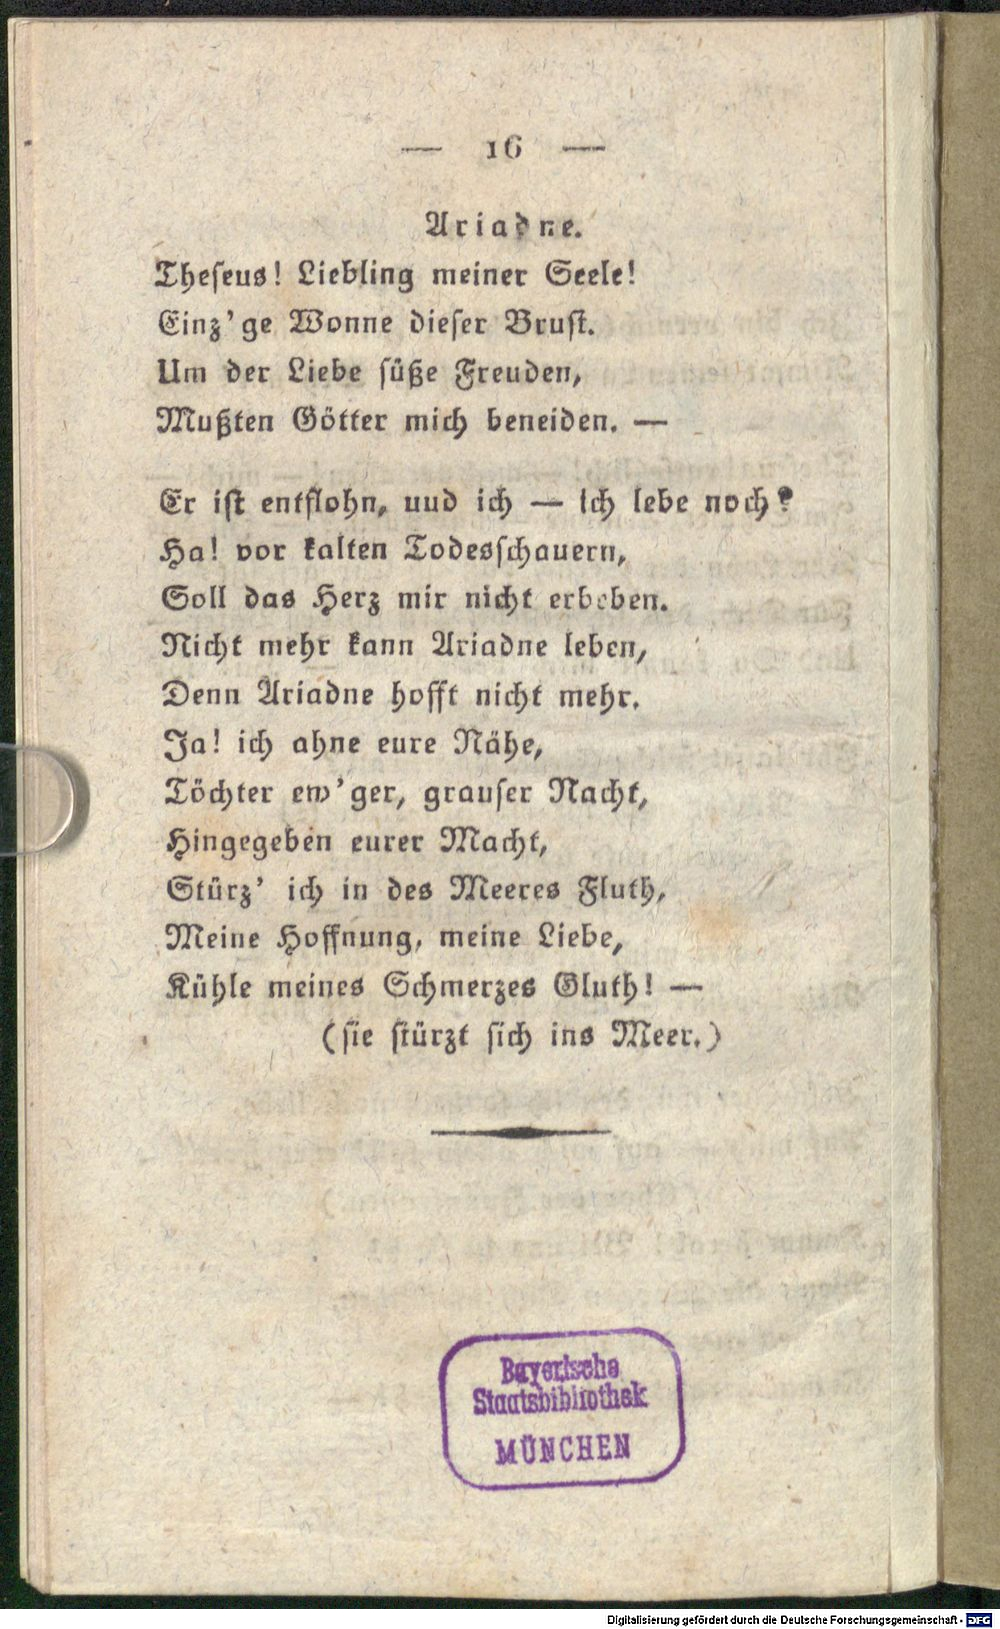 — 16 —
Ariadne.
Theseus! Liebling meiner Seele!
Einz'ge Wonne dieser Brust.
Um der Liebe süße Freuden,
Mußten Götter mich beneiden. —
Er ist entflohn, uud ich — ich lebe noch?
Ha! vor kalten Todesschauern,
Soll das Herz mir nicht erbeben.
Nicht mehr kann Ariadne leben,
Denn Ariadne hofft nicht mehr.
Ja! ich ahne eure Nähe,
Töchter ew'ger, grauser Nacht,
Hingegeben eurer Macht,
Stürz' ich in des Meeres Fluth,
Meine Hoffnung, meine Liebe,
Kühle meines Schmerzes Gluth! —
(sie stürzt sich ins Meer.)
Bayerische
Staatsbibliothek
MÜNCHEN
Digitalisierung gefördert durch die Deutsche Forschungsgemeinschaft - DFG